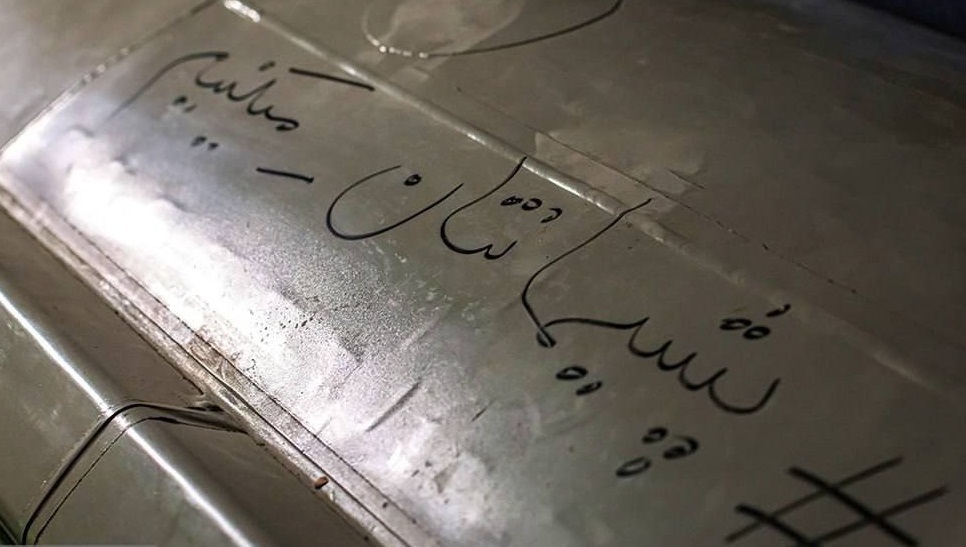 #پشیمانتان_میکنیم